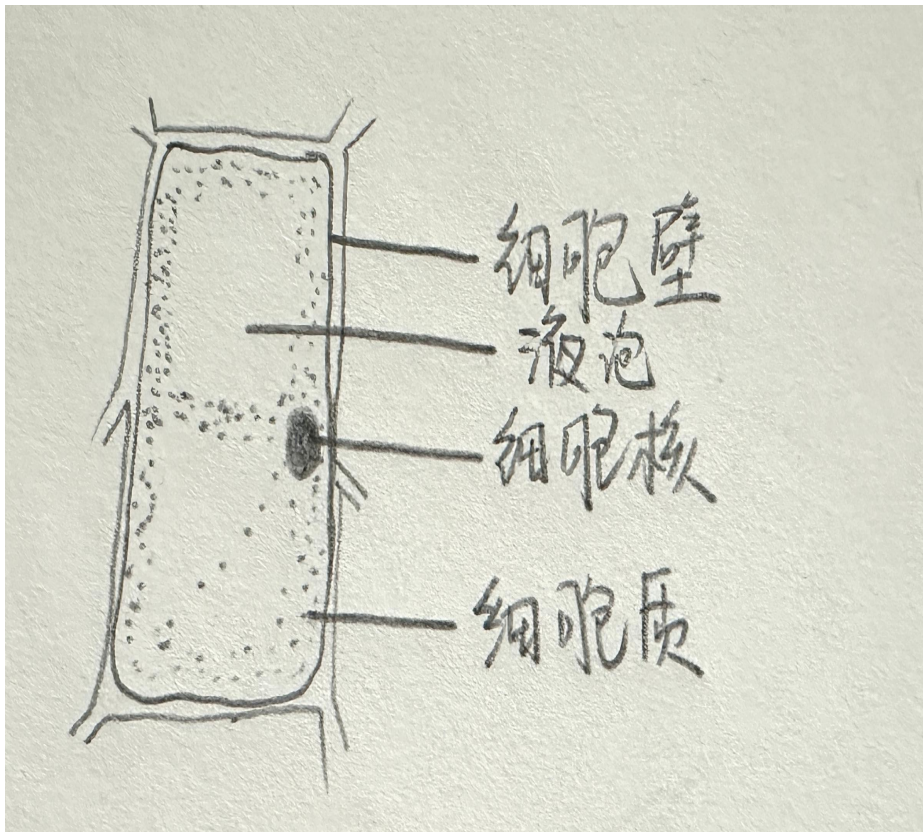 细胞壁
液泡
细胞核
细胞质